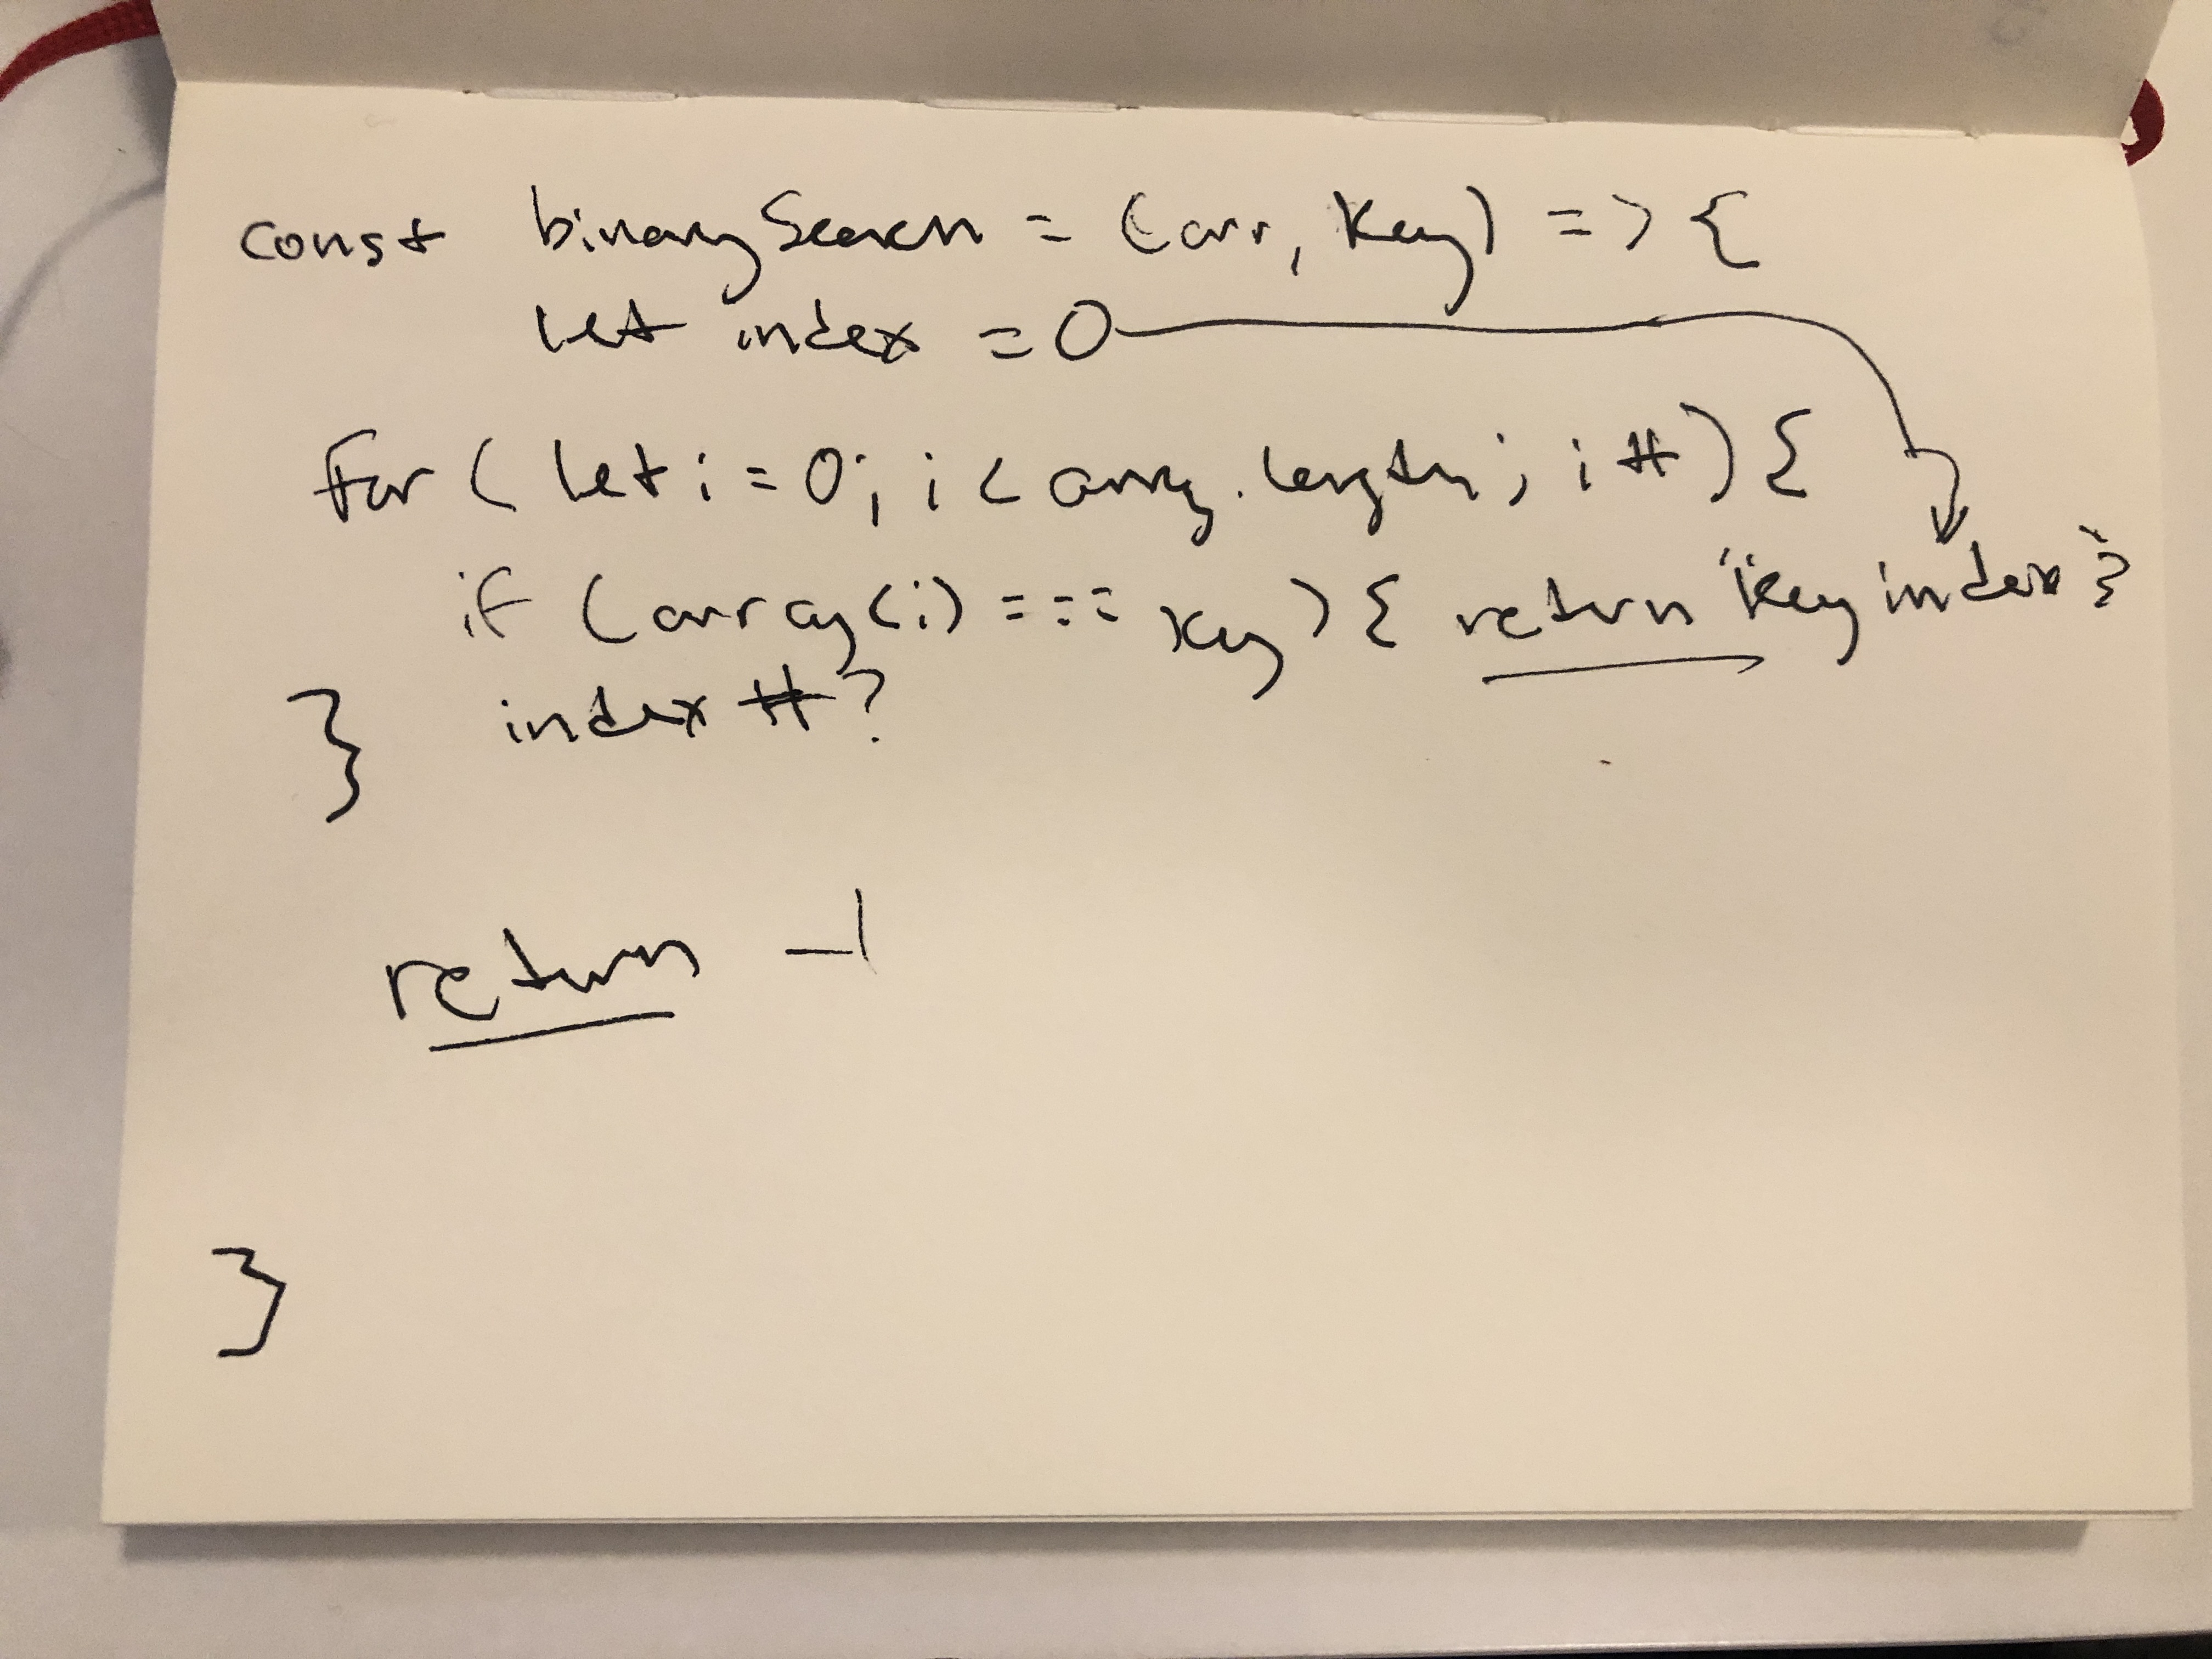 const binarySearch = (arr, key) => {
let index = 0
for (let i = 0; i < array.length; i++) {
if (array(i) === key) { return "key index }
index ++;
}
return -1
}